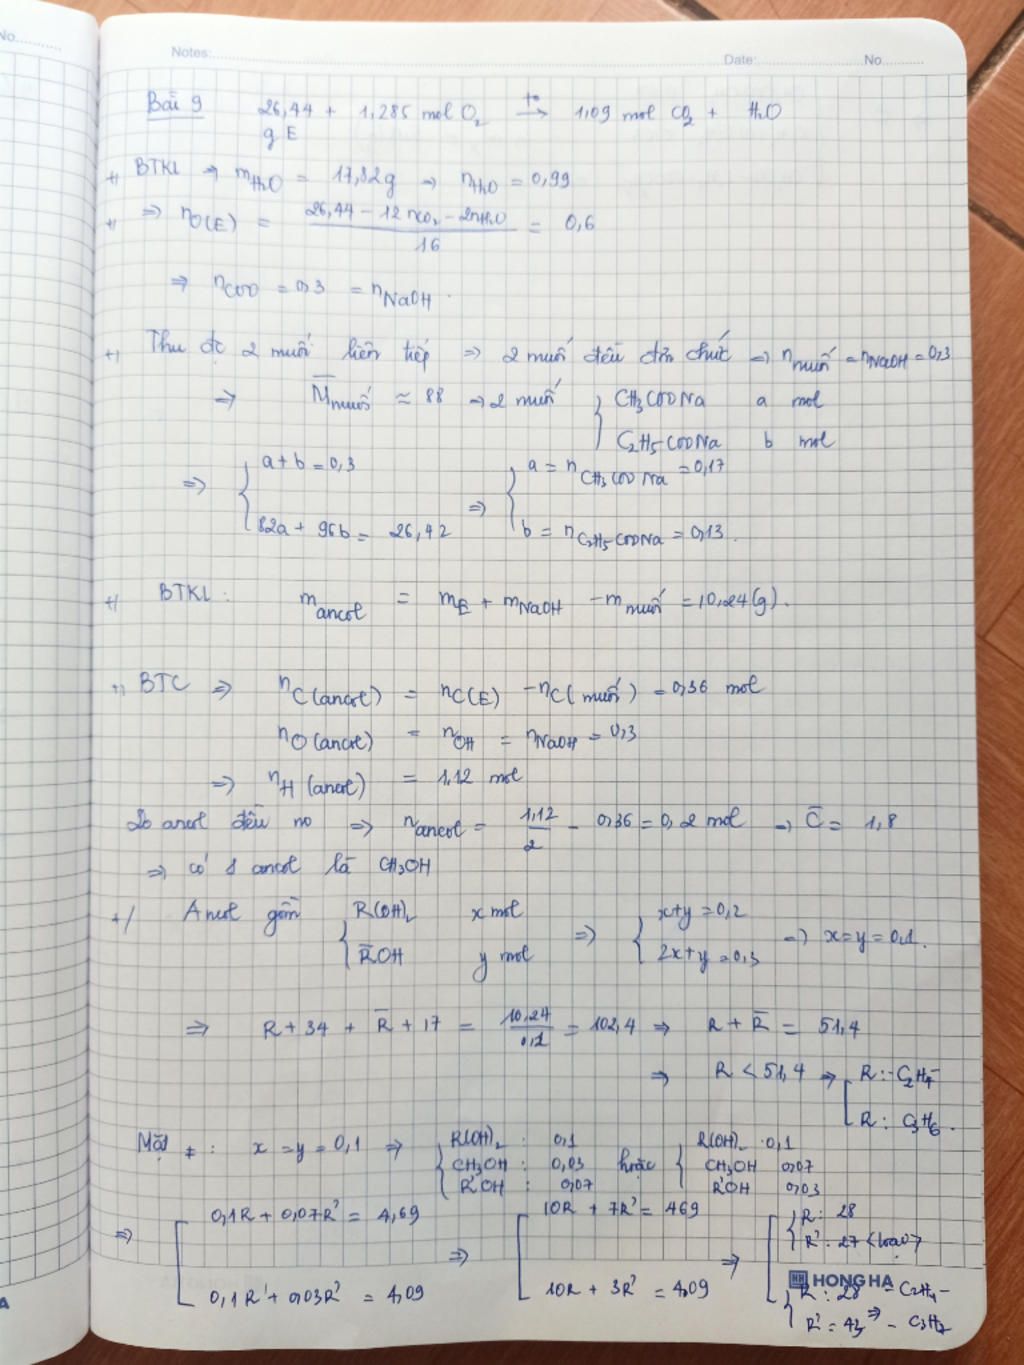 No............
Notes:............ Date:............ No............
Bài 9 26,44 + 1,285 mol O₂ →(t°) 1,09 mol CO₂ + H₂O
g E
+/ BTKL → m H₂O = 17,82g → n H₂O = 0,99
+/ ⇒ nO(E) = (26,44 - 12 nCO₂ - 2nH₂O)/16 = 0,6
⇒ nCOO = 0,3 = nNaOH.
+/ Thu đc 2 muối liên tiếp ⇒ 2 muối đều đơn chức → n muối = nNaOH = 0,3
⇒ M̄ muối ≈ 88 → 2 muối { CH₃COONa a mol
C₂H₅COONa b mol
⇒ { a + b = 0,3 ⇒ { a = n CH₃COONa = 0,17
82a + 96b = 26,42 b = n C₂H₅COONa = 0,13.
+/ BTKL: m ancol = mE + mNaOH - m muối = 10,24(g).
+/ BTC ⇒ nC(ancol) = nC(E) - nC(muối) = 0,36 mol
nO(ancol) = nOH = nNaOH = 0,3
⇒ nH(ancol) = 1,12 mol
Do ancol đều no ⇒ n ancol = 1,12/2 - 0,36 = 0,2 mol → C̄ = 1,8
⇒ có 1 ancol là CH₃OH
+/ Ancol gồm { R(OH)₂ x mol ⇒ { x+y = 0,2 → x = y = 0,1.
R̄OH y mol 2x+y = 0,3
⇒ R + 34 + R̄ + 17 = 10,24/0,1 = 102,4 ⇒ R + R̄ = 51,4
⇒ R < 51,4 ⇒ [ R: -C₂H₄-
R: C₃H₆.
Mặt ≠: x = y = 0,1 ⇒ { R(OH)₂: 0,1 hoặc { R(OH)₂ 0,1
CH₃OH: 0,03 CH₃OH 0,07
R'OH: 0,07 R'OH 0,03
⇒ [ 0,1R + 0,07R' = 4,69 ⇒ [ 10R + 7R' = 469 ⇒ [ { R: 28
R': 27 <loại>
0,1R + 0,03R' = 4,09 10R + 3R' = 4,09 { R: 28 -C₂H₄-
R' = 43 ⇒ -C₃H₇
HH HONG HA